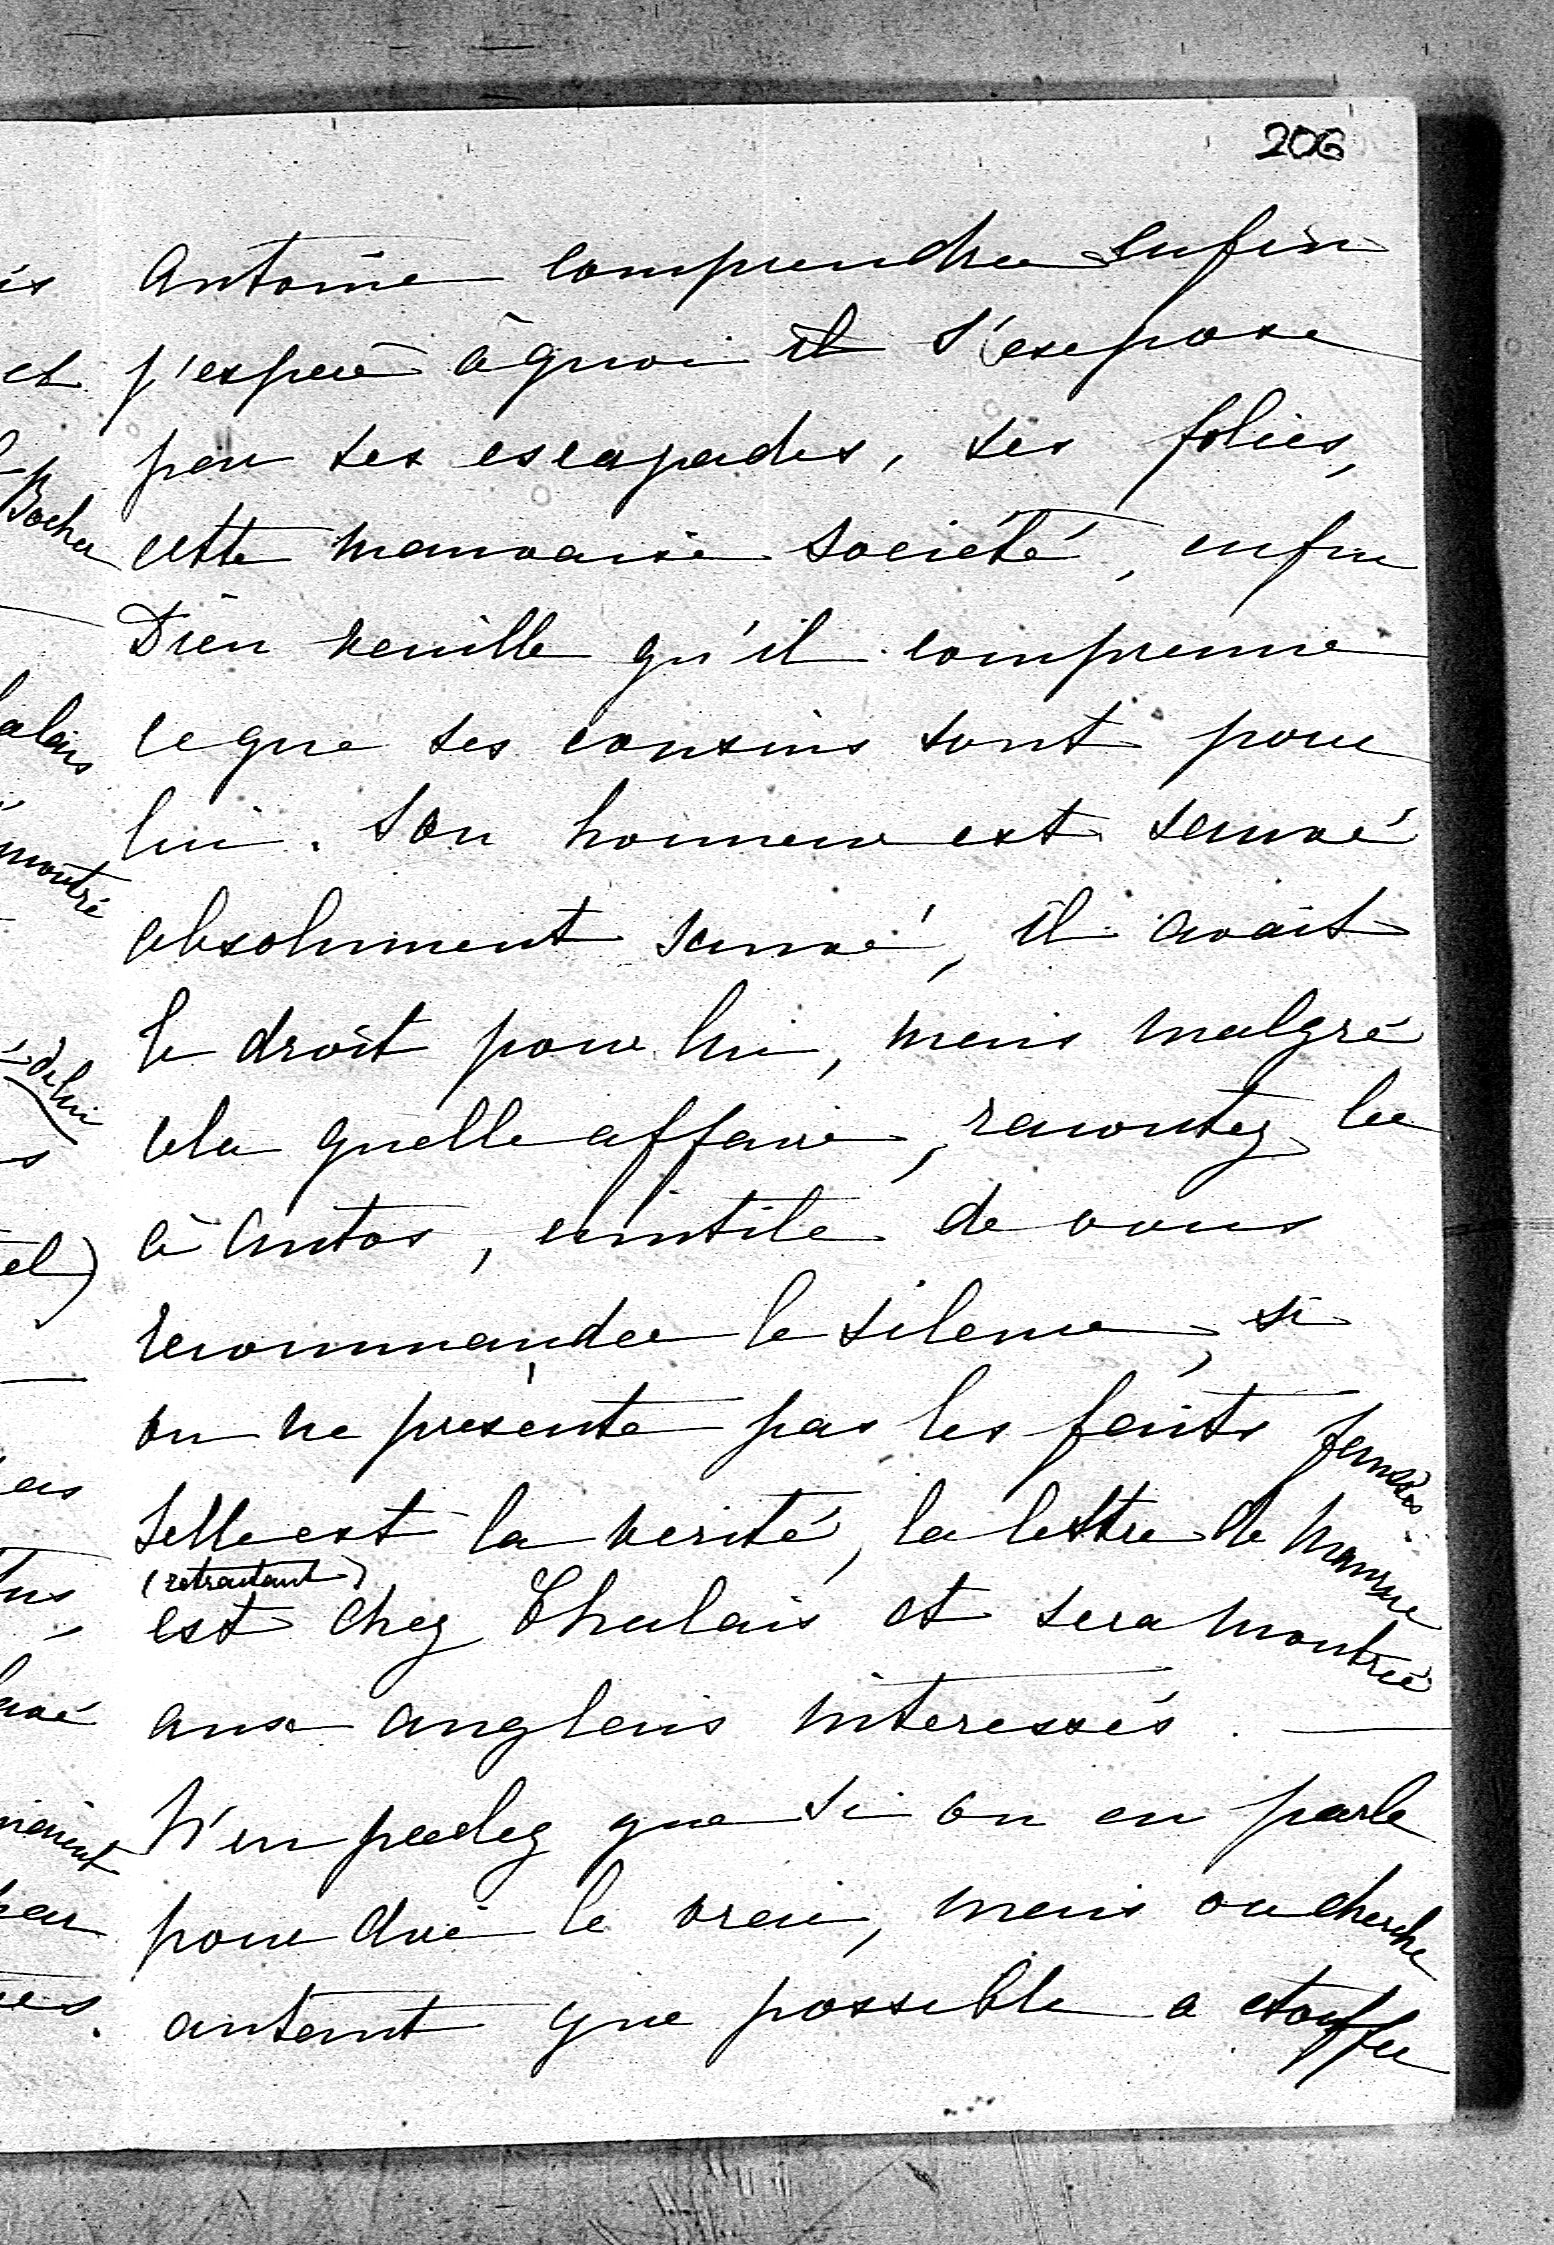 206
Antoine comprendra enfin
j'espère à quoi il s'expose
par ses escapades, ses folies,
cette mauvaise société, enfin
Dieu veuille qu'il comprenne
ce que ses cousins sont pour
lui. Son honneur est sauvé
absolument sauvé, il avait
le droit pour lui, mais malgré
cela quelle affaire, racontez la
à Antos, inutile de vous
recommander le silence, si
on ne présente pas les faits
telle est la verité, la lettre de
(retractant)
est chez Thalais et sera montrée
aux anglais interessés.
N'en parlez que si on en parle
pour dire le vrai, mais on cherche
autant que possible a etouffer
is
et
Bocher
alais
montré
de lui
el)
as
tus,
par